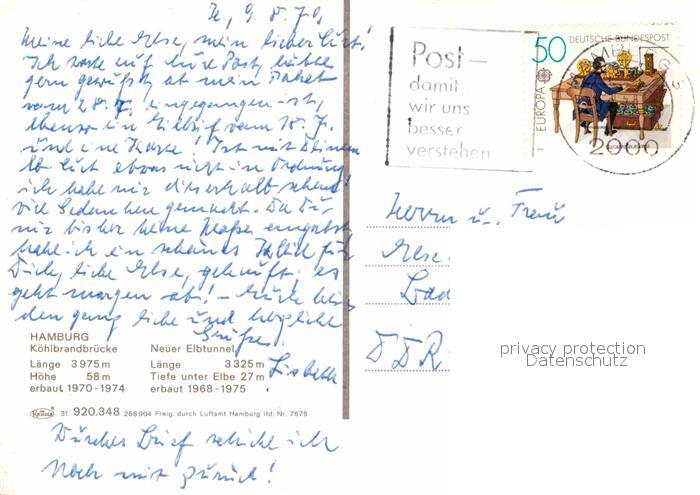 H., 9.8.79.
Meine liebe Else, mein lieber Kurt!
Ich warte auf Eure Post, hätte
gern gewußt, ob mein Paket
vom 28.7. eingegangen ist,
ebenso ein Eilbrief vom 18.7.
und eine Karte! Ist mit Deinem
lb Kurt etwas nicht in Ordnung,
ich habe mir dieserhalb schon
viel Gedanken gemacht. Da Du
mir bisher keine Maße angabst,
habe ich ein schönes Kleid für
Dich, liebe Else, gekauft; es
geht morgen ab! –
den ganz liebe und herzliche
Grüße.
Lisbeth.
Brief schicke ich
noch mit zurück!
HAMBURG
Köhlbrandbrücke
Länge 3 975 m
Höhe 58 m
erbaut 1970 - 1974
Neuer Elbtunnel
Länge 3 325 m
Tiefe unter Elbe 27 m
erbaut 1968 - 1975
Krüger 31. 920.348 268 904 Freig. durch Luftamt Hamburg lfd. Nr. 7675
Post –
damit
wir uns
besser
verstehen
50 DEUTSCHE BUNDESPOST
EUROPA
HAMBURG
2000
Herrn u. Frau
Else
Bad
DDR
privacy protection
Datenschutz